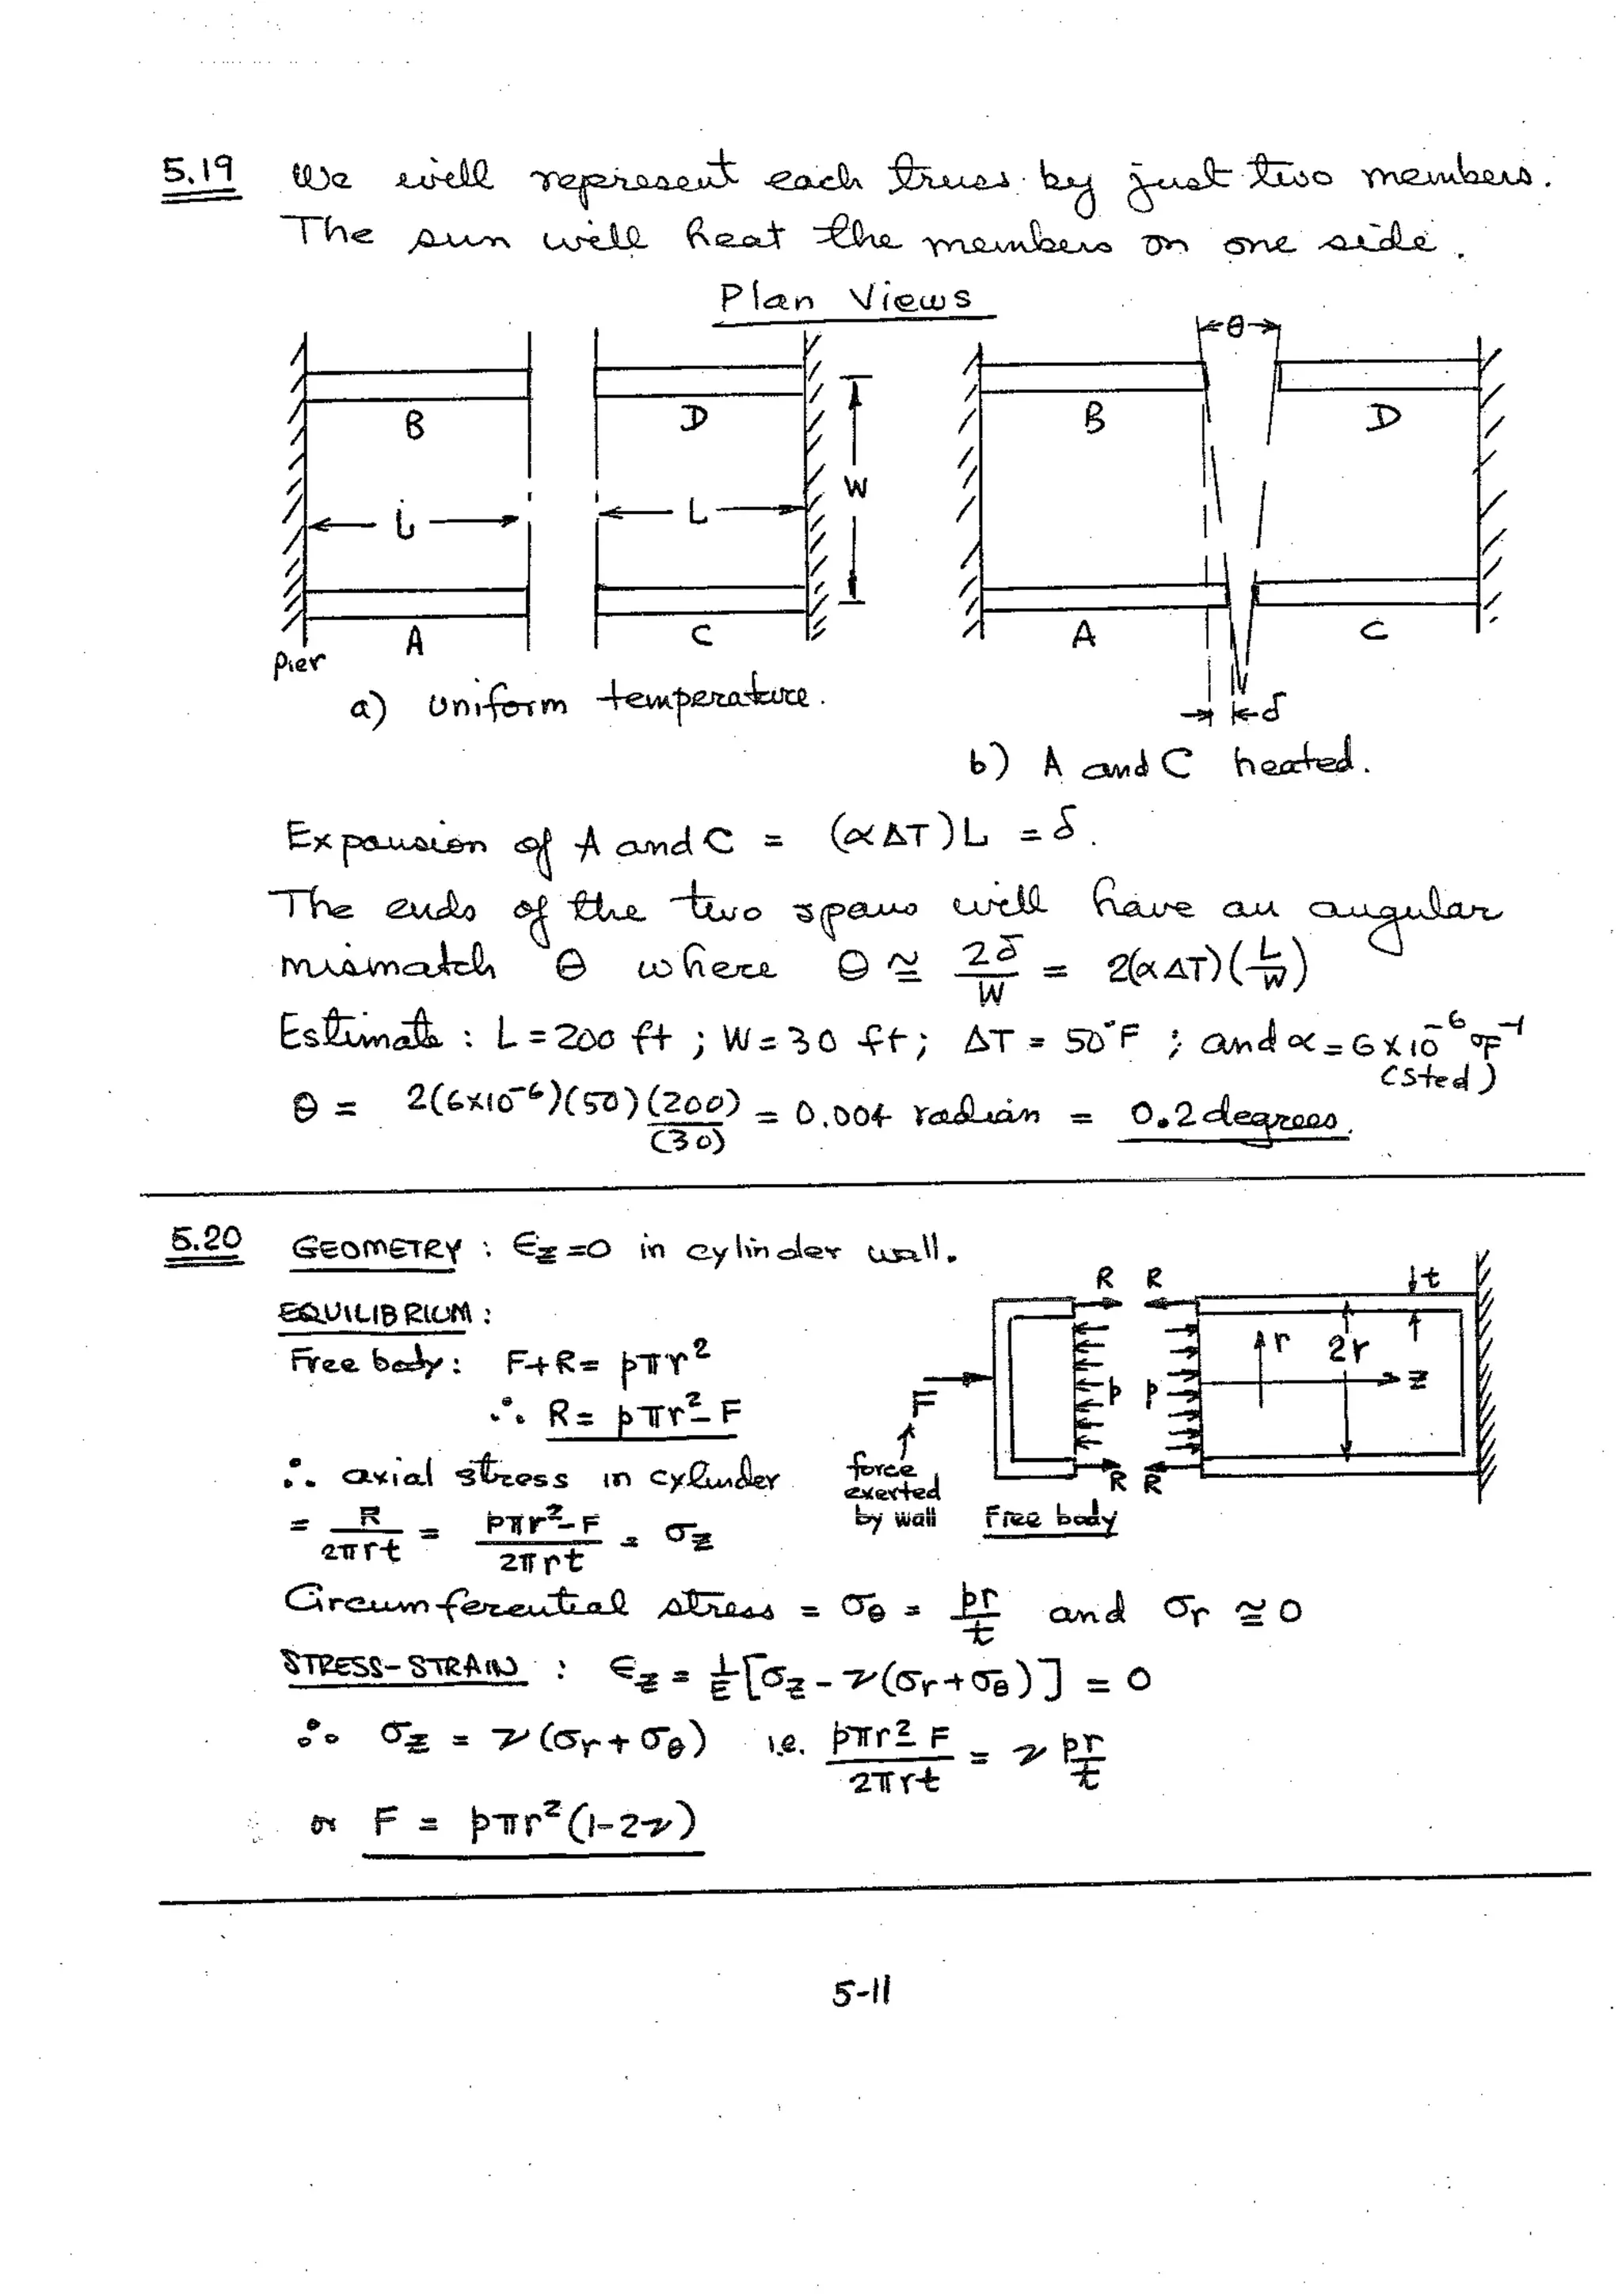 5.19 We will represent each truss by just two members.
The sun will heat the members on one side.
Plan Views
θ
B D W B D
L L
A C A C
Pier
a) Uniform temperature.
δ
b) A and C heated.
Expansion of A and C = (αΔT)L = δ.
The ends of the two spans will have an angular
mismatch θ where θ ≅ 2δ/W = 2(αΔT)(L/W)
Estimate : L = 200 ft ; W = 30 ft ; ΔT = 50°F ; and α = 6×10⁻⁶ °F⁻¹
(steel)
θ = 2(6×10⁻⁶)(50)(200)/(30) = 0.004 radian = 0.2 degrees.
5.20 GEOMETRY : ϵz = 0 in cylinder wall.
EQUILIBRIUM :
Free body : F+R = pπr²
∴ R = pπr² – F
∴ axial stress in cylinder
= R/2πrt = pπr²–F/2πrt = σz
R R t
r 2r
F p p z
force
exerted
by wall
R R
Free body
Circumferential stress = σθ = pr/t and σr ≅ 0
STRESS-STRAIN : ϵz = 1/E[σz – ν(σr+σθ)] = 0
∴ σz = ν(σr+σθ) i.e. pπr²–F/2πrt = ν pr/t
or F = pπr²(1–2ν)
5-11